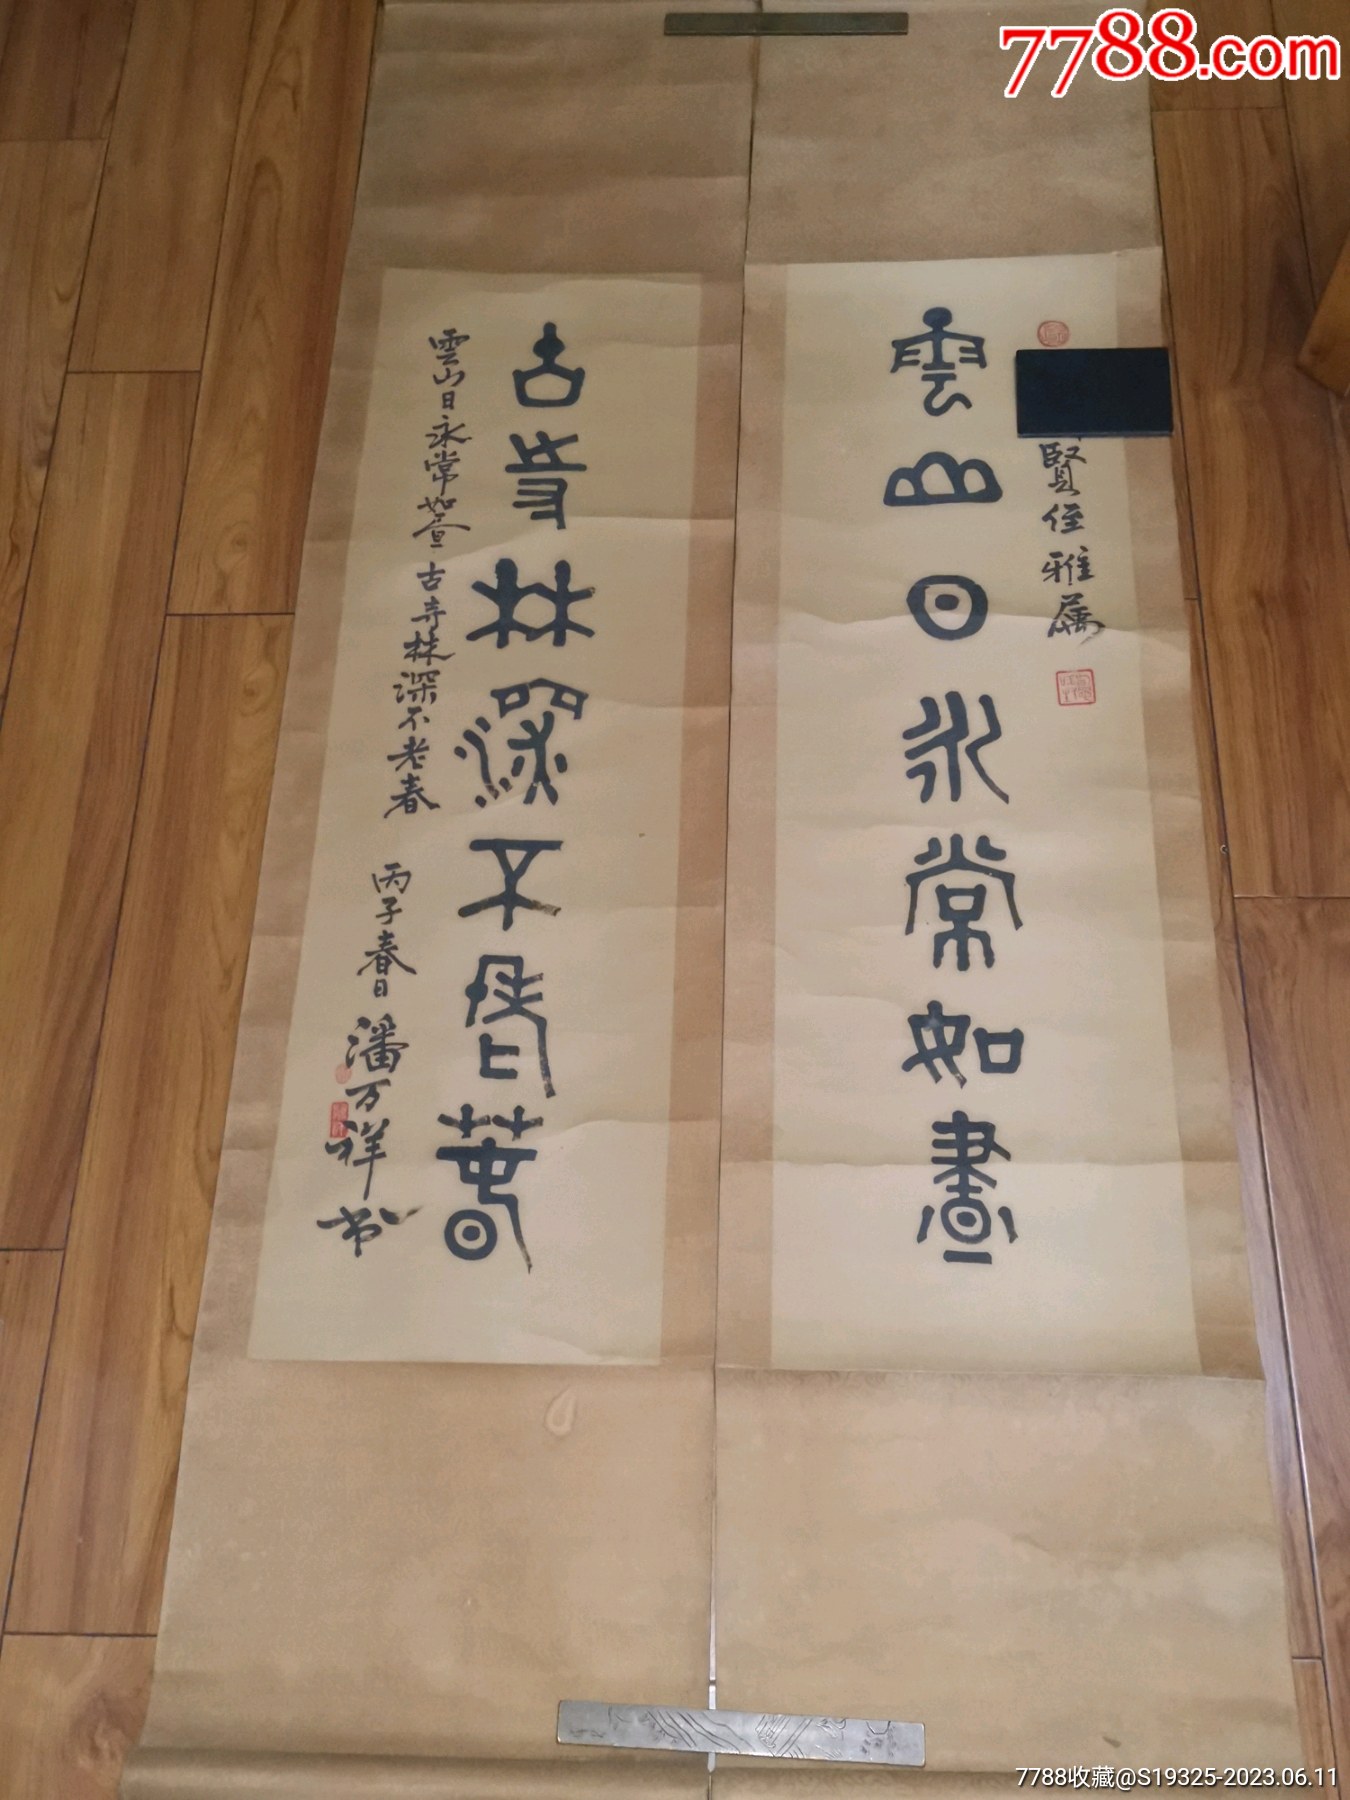 7788.com
賢侄雅屬
雲山日永常如晝
古寺林深不老春
雲山日永常如晝 古寺林深不老春 丙子春日 潘万祥书
7788收藏@S19325-2023.06.11